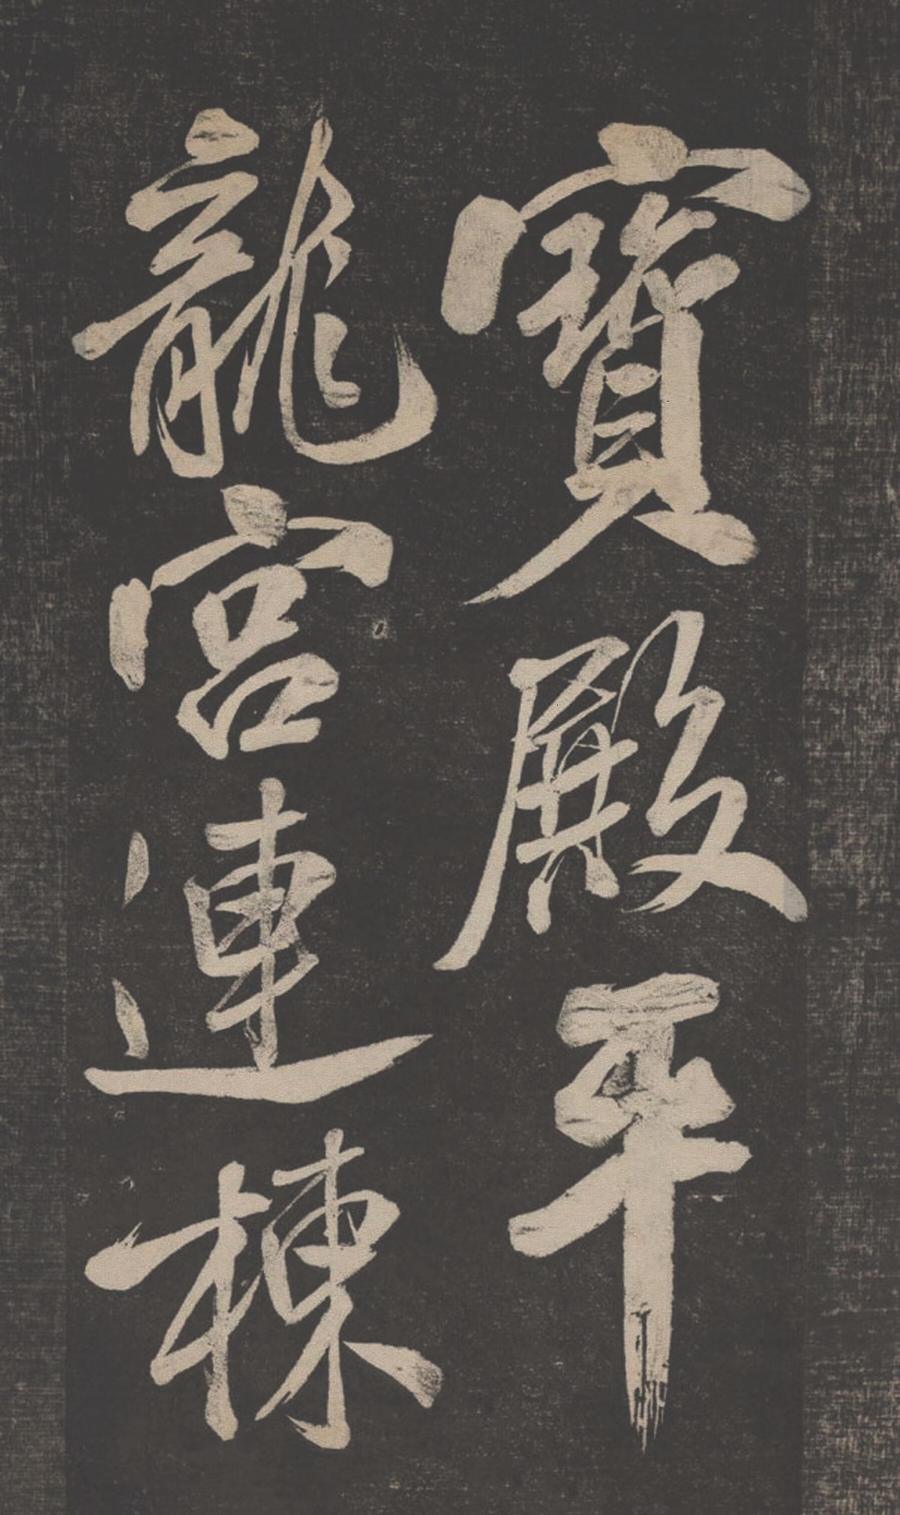 寶殿平
龍宮連棟